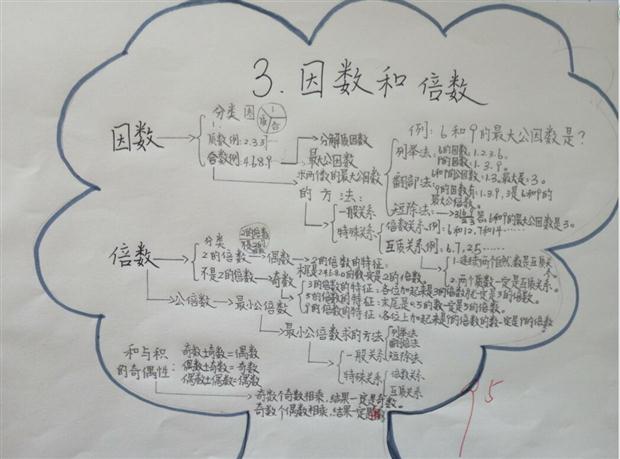 3.因数和倍数
因数
分类 因
1
质 合
1.
质数例:2.3.3
合数例:4.6.8.9
分解质因数
最大公因数
求两个数的最大公因数
的方法:
一般关系
特殊关系
例:6和9的最大公因数是?
列举法:6的因数:1.2.3.6.
9的因数:1.3.9.
6和9的公因数:1.3.最大是:3。
翻倍法:
9的因数有:1.3.9,3是6和9的
最大公倍数。
短除法:
6和9的最大公因数是3。
倍数关系例:6和12,7和14……
互质关系例:6.7,25……
1.连续两个自然数是互质关
系。
2.两个质数一定是互质关系。
倍数
分类
2的倍数
不是2的
2的倍数
偶数
2的倍数的特征:
末尾是2.4.6.8.0的数一定是2的倍数。
不是2的倍数
奇数
3的倍数的特征:各位加起来是3的倍数就一定是3的倍数。
5的倍数的特征:末尾是0.5的数一定是5的倍数。
9的倍数的特征:各位上加起来是9的倍数的数一定是9的倍数
公倍数
最小公倍数
最小公倍数求的方法
列举法
翻倍法
短除法
一般关系
特殊关系
倍数关系
互质关系
和与积
的奇偶性:
奇数±奇数=偶数
偶数±奇数=奇数
偶数±偶数=偶数
奇数个奇数相乘,结果一定是奇数。
奇数个偶数相乘,结果一定是
5